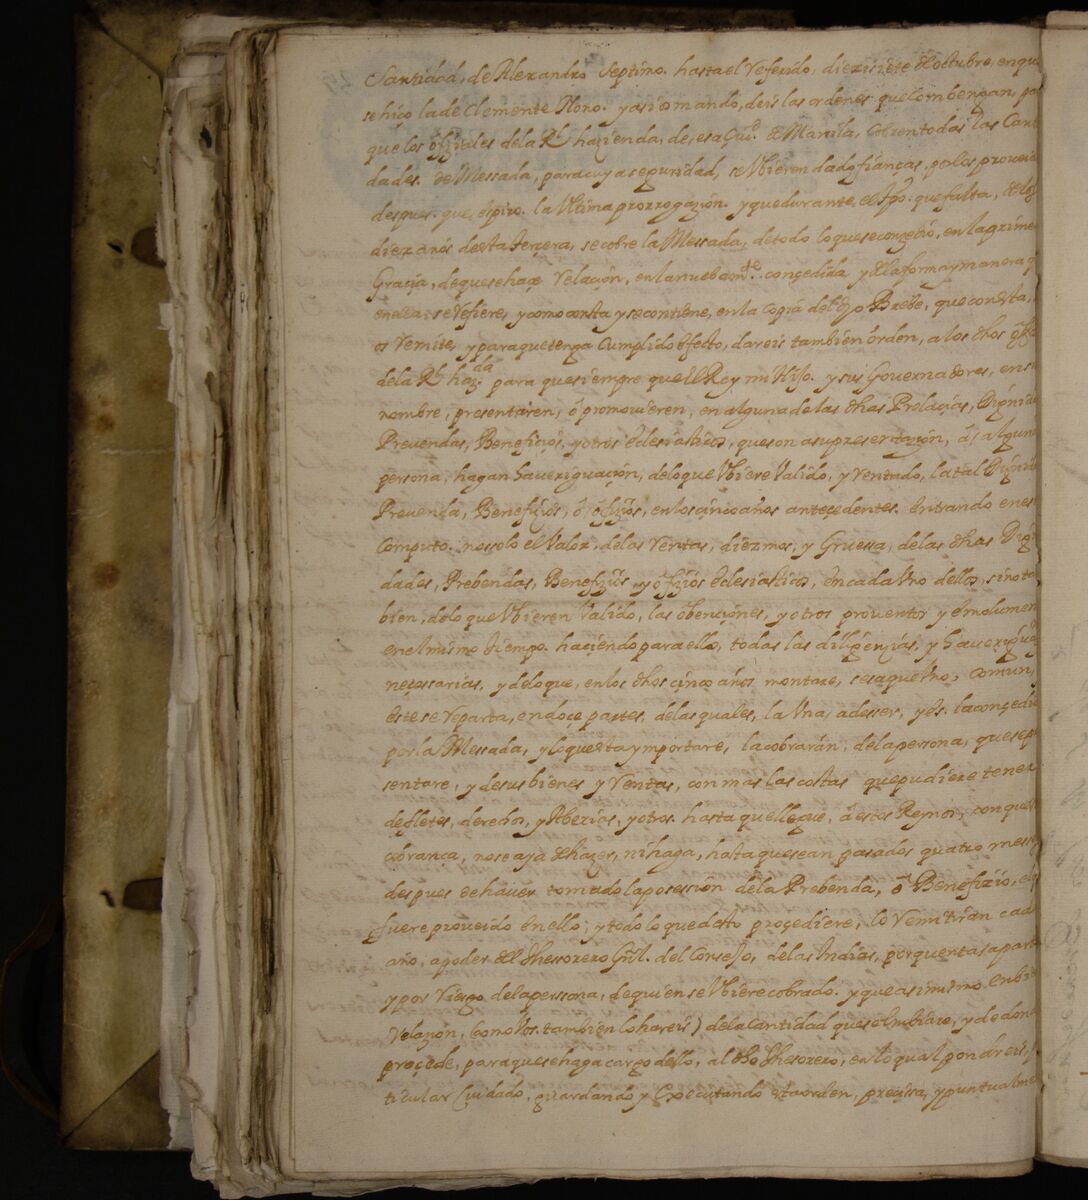 Santidad, de Alexandro Septimo. hasta el referido, diez i siete de octubre, en qu
se hiço la de Clemente Nono. y asi os mando, deis las ordenes que combengan, pa
que los offiziales de la Rl hazienda, de, esa Ciud. de Manila, cobren todas las Cant
dades. de Messada, para cuya seguridad, se Ubieren dado fianças, por los proveid
despues. que, espiro. la Ultima prorrogazion. y que durante, el tpo. que falta, de los
diez años desta terzera, se cobre la Messada, de todo lo que se conzedio, en la prime
Graçia, de que se haçe Relaçion, en la nuebamte. conçedida y de la forma y manera q
en ella se refiere, y como consta y se contiene, en la copia del dho Brebe, que con esta,
os remite, y para que tenga Cumplido Efecto, dareis tambien orden, a los dhos offi
de la Rl hazda. para que siempre que El Rey mi Hijo. y sus Governadores, en su
nombre, presentaren, ô promovieren, en alguna de las dhas Prelaçias, Dignid
Prevendas, Benefiçios, y otros eclesiasticos, que son a su presentazion, â alguna
persona, hagan haveriguaçion, de lo que Ubiere Valido, y Rentado, la tal Dignid
Prevenda, Benefizios, ô offizios, en los çinco años antezedentes. entrando en es
Computo. no solo el Valor. de las Rentas, diezmos, y Gruessa, de las dhas Dig
dades, Prebendas, Benefizios y offizios Eclesiasticos, en cada Uno dellos, sino ta
bien, de lo que Ubieren Valido, las obençiones, y otros proventos y emolumen
en el mismo tiempo. haçiendo para ello, todas las diligençias, y haverigua
neçessarias, y de lo que, en los dhos çinco años montare, se saque Uno, comun,
este se reparta, en doce partes, de las quales, la Una, a de ser, y es. la conçedi
por la Messada, y lo que esta ymportare, la cobraràn, de la persona, que se p
sentare, y de sus bienes y Rentas, con mas las costas que pudiere tener
de fletes, derechos, y Aberias, y otros hasta que llegue, â estos Reynos, con que
cobrança, no se aya de hazer, ni haga, hasta que sean pasados quatro mese
despues de haver tomado la posession de la Prebenda, ô Benefizio, el q
fuere proveido en ello; y todo lo que desto proçediere, lo remitiran cad
año, a poder del Thessorero Gnl. del Consejo, de las Indias, por quenta aparte
y por riesgo de la persona, de quien se Ubiere cobrado. y que asimismo enbi
Relazion, (como Vos. tambien lo hareis) de la Cantidad que se Imbiare, y de don
proçede, para que se haga cargo dello, al dho Thessorero, en lo qual pondreis,
ticular Cuidado, guardando y Executando esta orden, preçissa, y puntualme